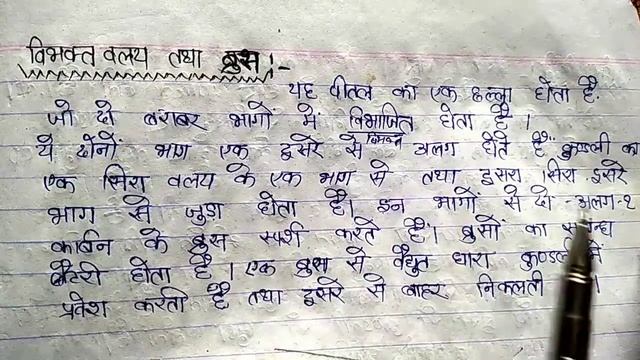 विभक्त वलय तथा ब्रुस :-
यह पीतल का एक छल्ला होता है.
जो दो बराबर भागों में विभाजित होता है ।
ये दोनों भाग एक दुसरे से विभक्त अलग होते है. कुण्डली का
एक सिरा वलय के एक भाग से तथा दुसरा सिरा दुसरे
भाग से जुडा होता है। इन भागों से दो -अलग-२
कार्बन के ब्रुस स्पर्श करते है। ब्रुसों का
बैटरी होता है । एक ब्रुस से वैधुत धारा कुण्डली में
प्रवेश करती है तथा दुसरे से बाहर निकलती ।